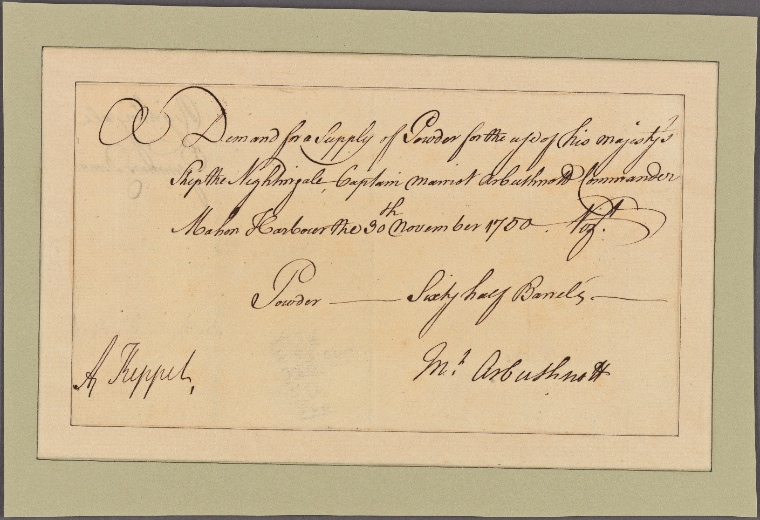 A Demand for a Supply of Powder for the use of his Majesty's
Ship the Nightingale, Captain Marriot Arbuthnott Commander
Mahon Harbour the 30th November 1750 Vizt
Powder — Sixty half Barrels —
A Keppel, Mt Arbuthnott